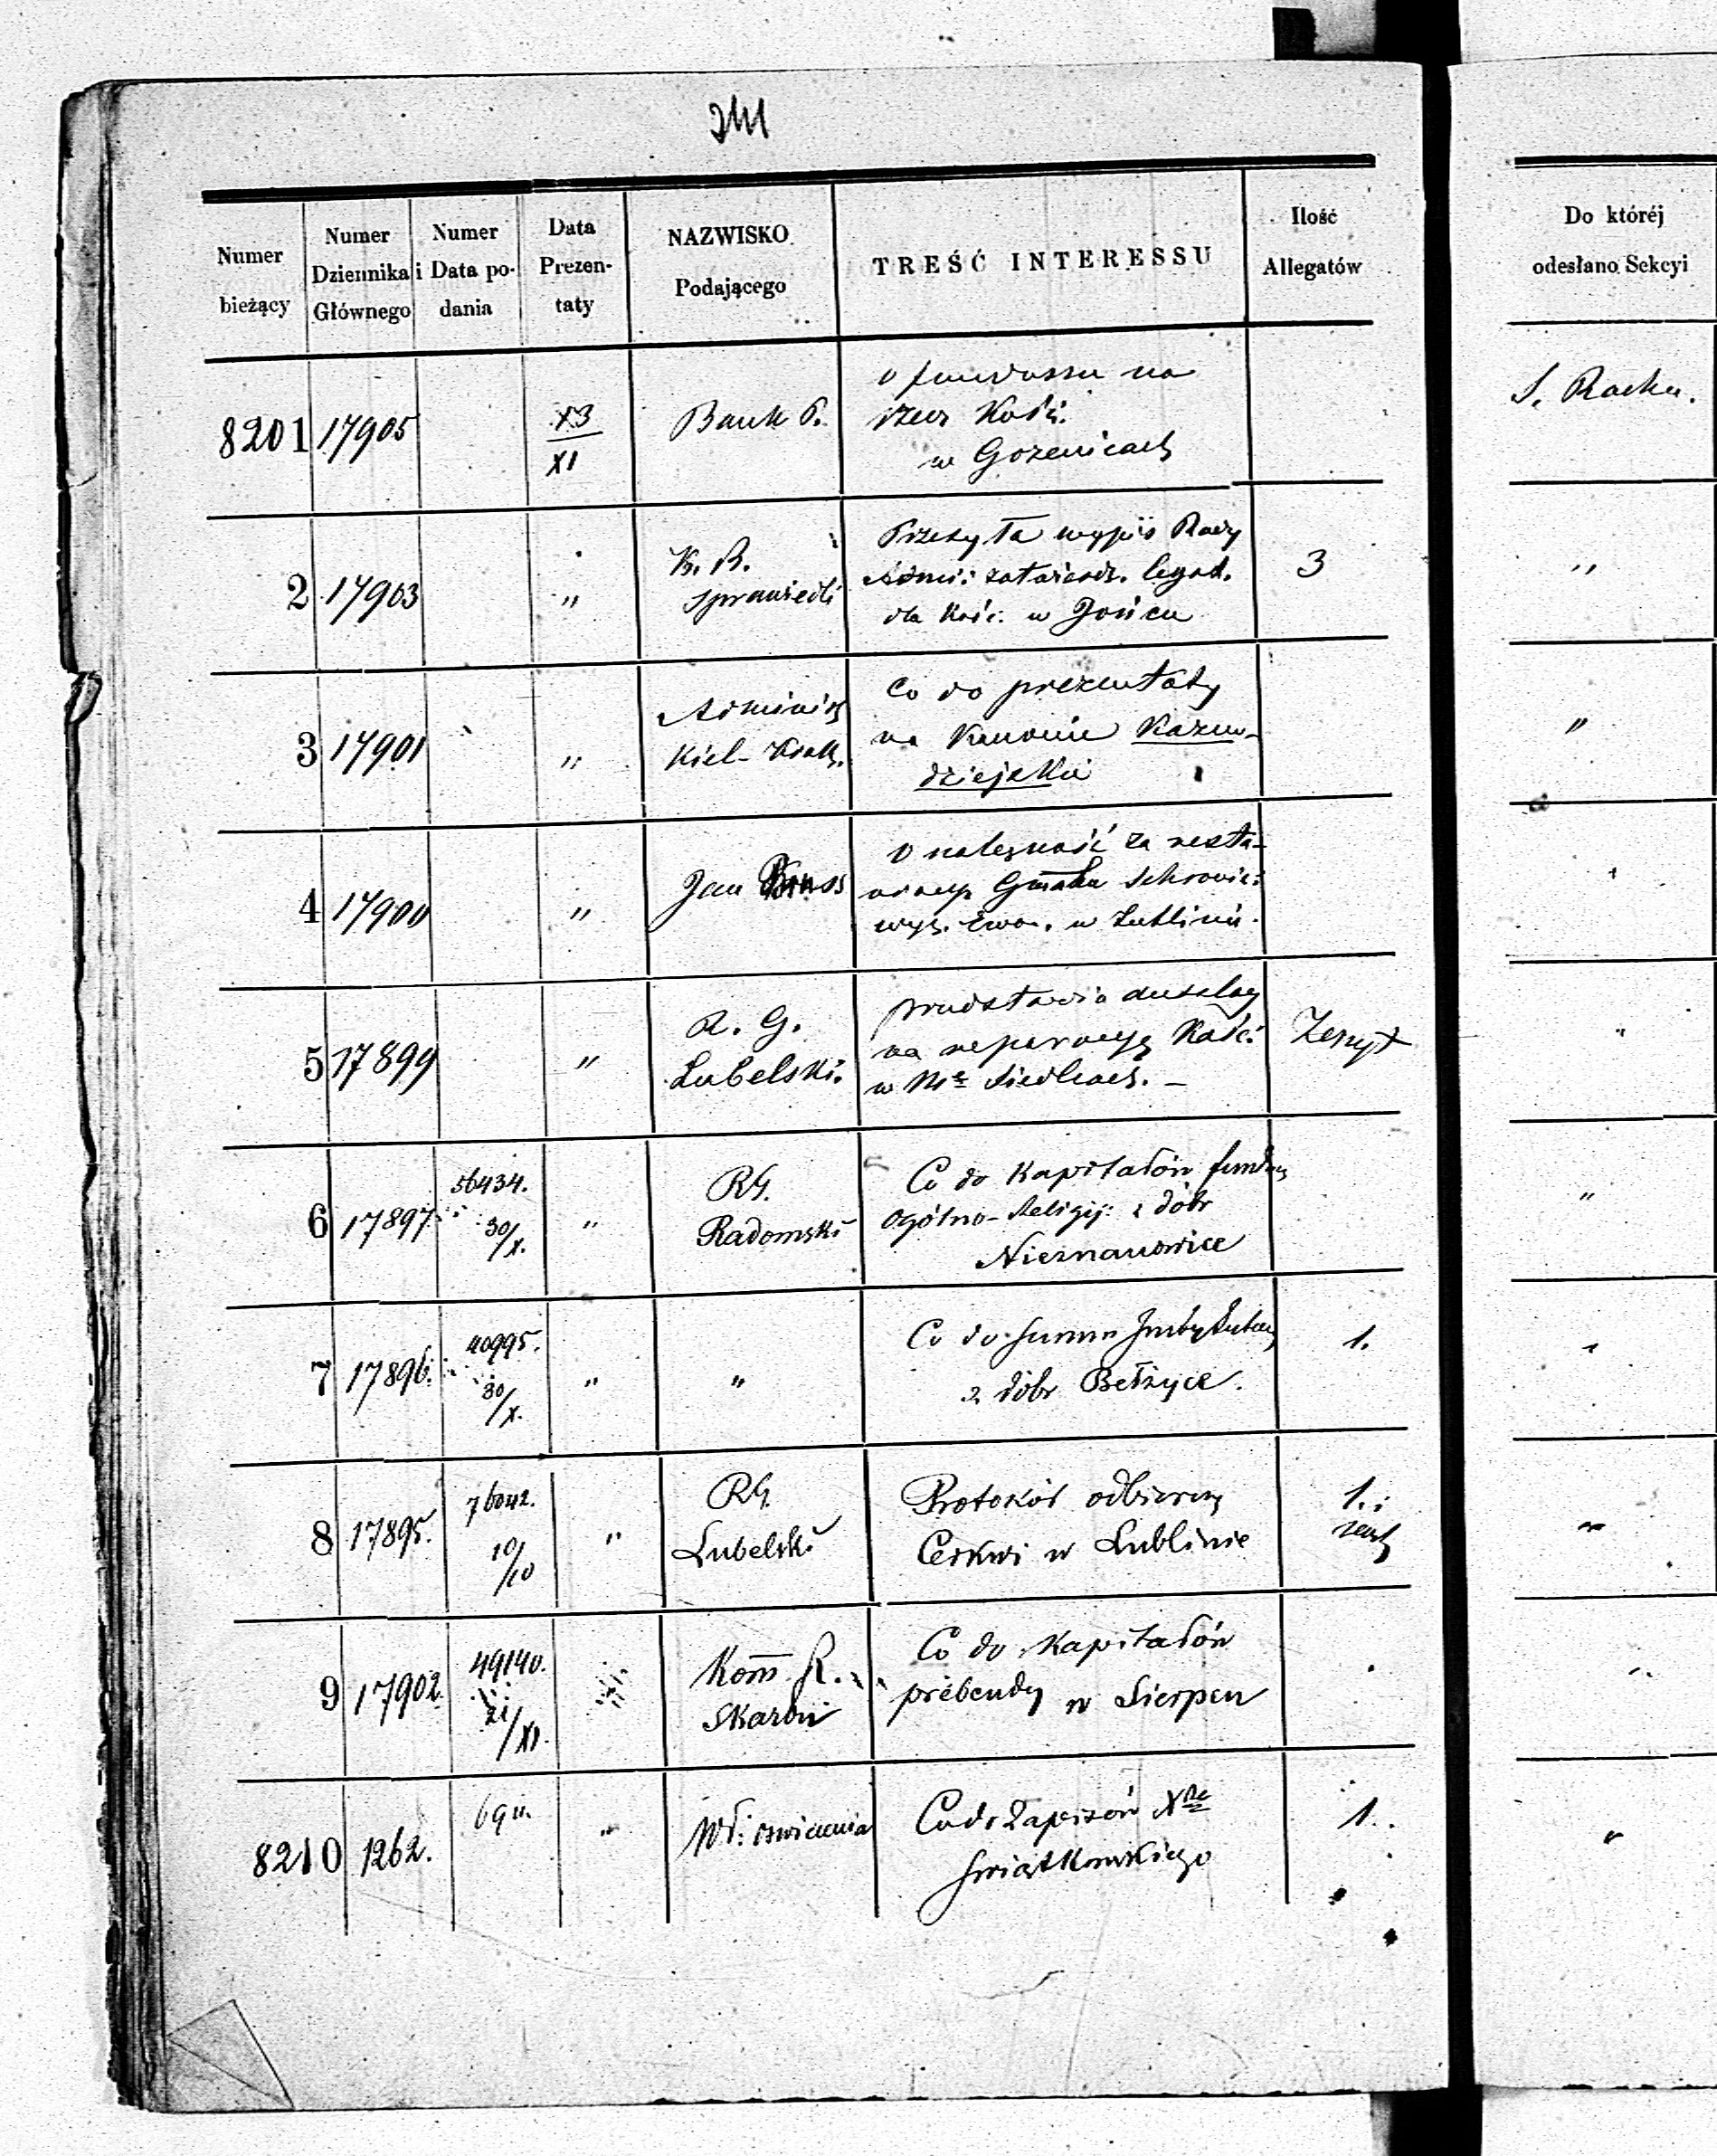 241
Numer bieżący
Numer Dziennika Głównego
Numer i Data podania
Data Prezentaty
NAZWISKO Podającego
TREŚĆ INTERESSU
Ilość Allegatów
Do któréj odesłano Sekcyi
8201 17905 XI Bank P.
o funduszu na
Kość:
w Gozenicach
S. Rachu.
2 17903 " K. R.
Sprawiedli
Przesyła wypis Rady
Admi: zatwierdz. legat.
dla Kośc: w Jońcu
3
"
3 17901 " Adminis
Kiel-Krak.
Co do prezentaty
na Kanonię Kazno-
dziejską
"
4 17900 " Jan
o należność za resta-
w Lublinie.
5 17899 " R. G.
Lubelski.
przedstawia anszlag
na reparacyę Kość:
w Mie Siedlcach. –
Zeszyt
"
6 17897 56434.
30/X.
" RG.
Radomski
Co do Kapitałów fundusz
Ogólno-Religij: z dóbr
Nieznanowice
"
7 17896. 40995.
30/X.
" "
Co do Summ
z dóbr Bełżyce.
1.
"
8 17895. 76042.
10/10
" RG.
Lubelski
Protokół odbiorczy
Cerkwi w Lublinie
1. i
"
9 17902. 49140.
21/XI.
Kom R.
Skarbu
Co do Kapitałów
prebendy w Sierpcu
"
8210 1262. 690. " Wł: oswiecenia
Co do Zapisów Xdza
Swiątkowskiego
1.
"